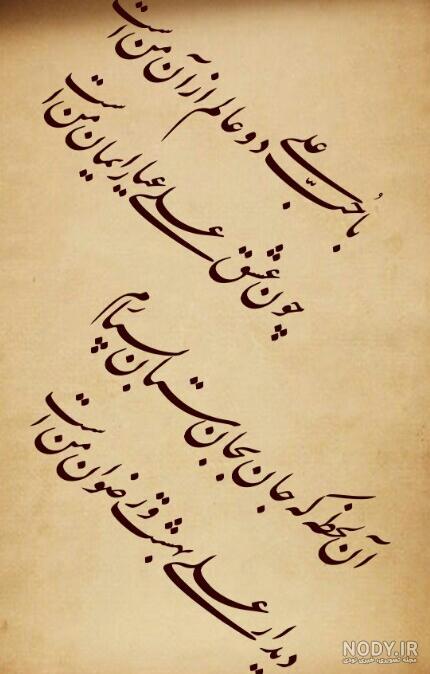 با حُبّ علی دو عالم از آن من است
چون عشق علی عیار ایمان من است
آن لحظه که جان بجان ستان بسپارم
دیدار علی بهشت و رضوان من است
NODY.IR
مجله تصویری، خبری نودی